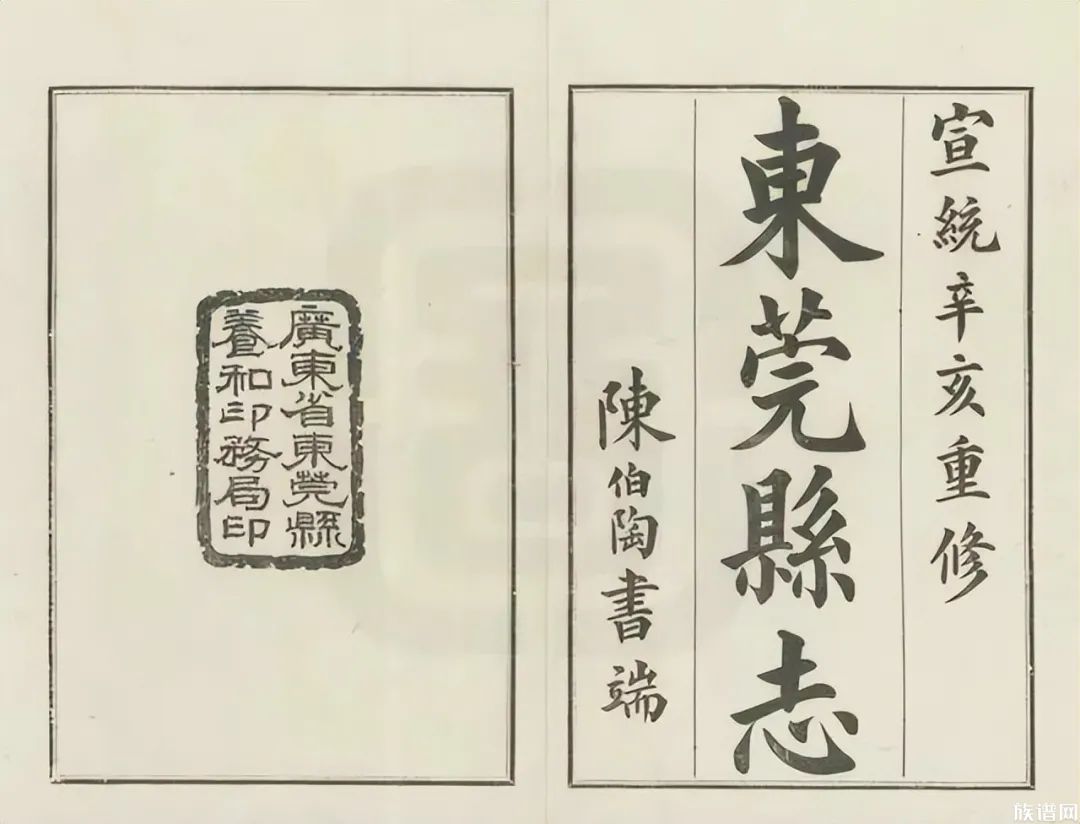 宣統辛亥重修
東莞縣志
陳伯陶書端
廣東省東莞縣
養和印務局印
族谱网